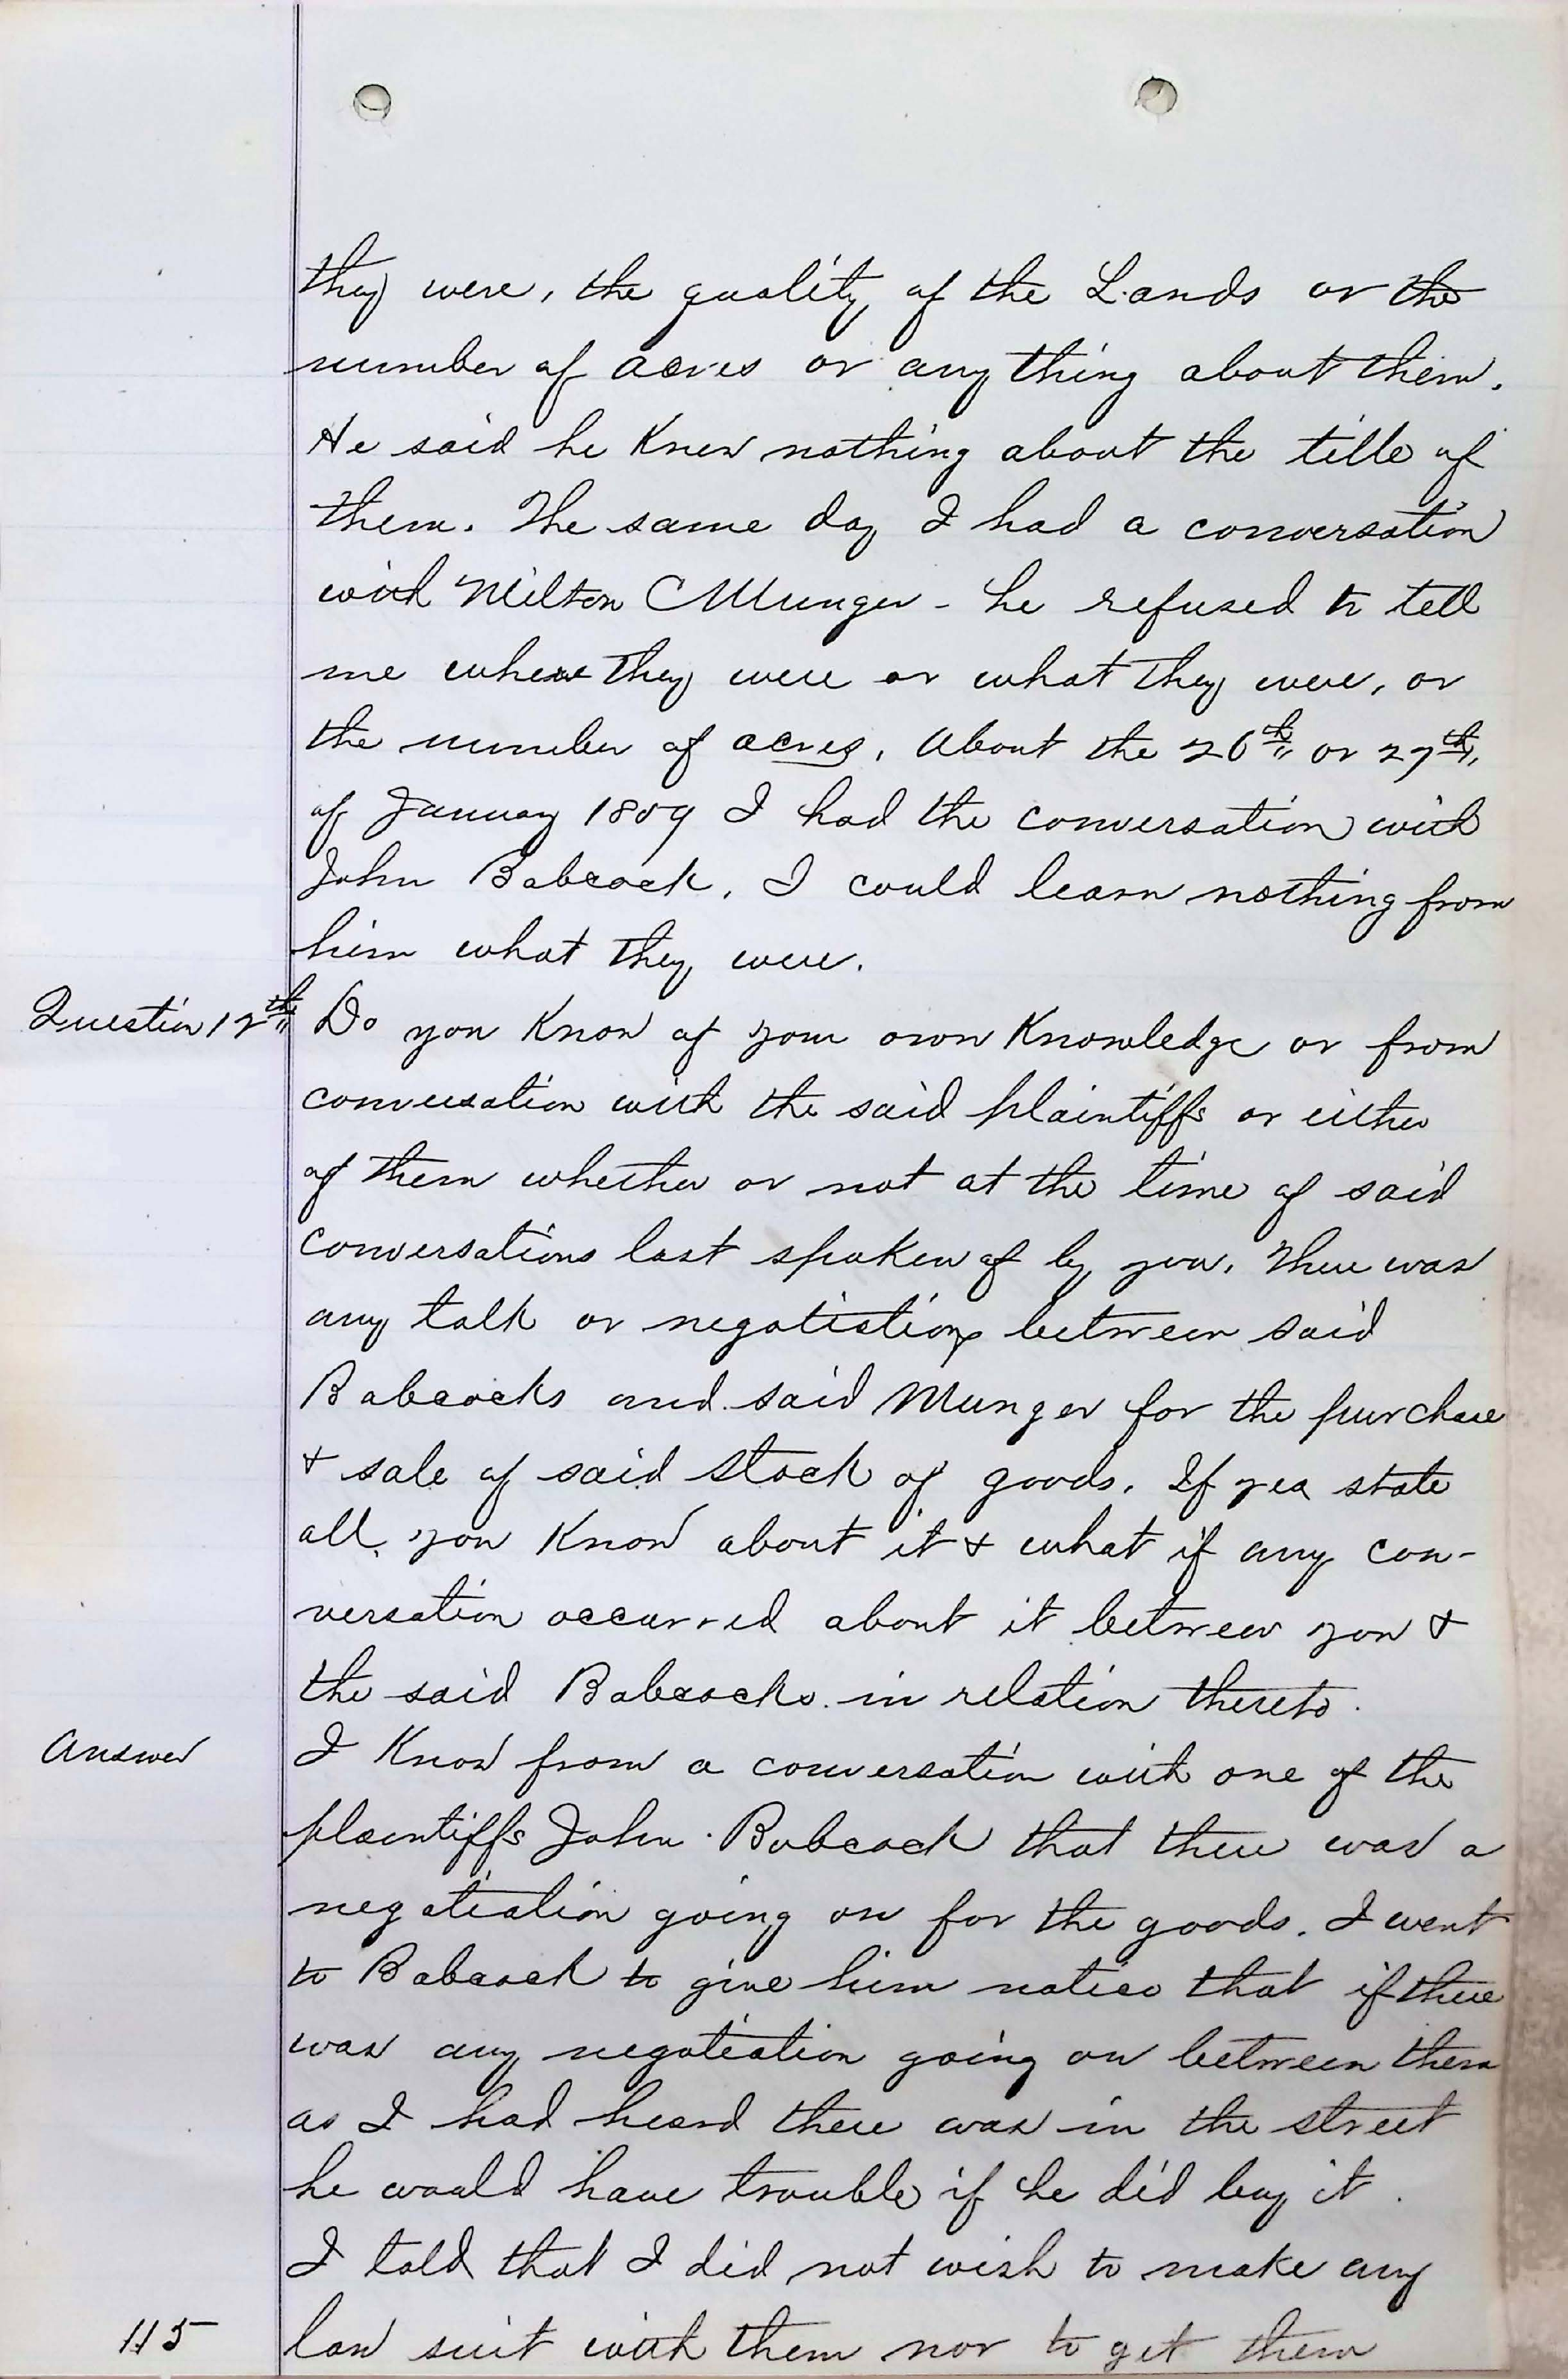 they were, the quality of the Lands or the
number of acres or any thing about them.
He said he Knew nothing about the title of
them. The same day I had a conversation
with Milton C Munger - he refused to tell
me where they were or what they were, or
the number of acres. About the 26th or 27th
of January 1859 I had the conversation with
John Babcock. I could learn nothing from
him what they were.
Question 12th Do you Know of your own Knowledge or from
conversation with the said plaintiffs or either
of them whether or not at the time of said
conversations last spoken of by you, there was
any talk or negotiations between said
Babcocks and said Munger for the purchase
& sale of said Stock of goods. If yea state
all you Know about it & what if any con-
versation occurred about it between you &
the said Babcocks in relation thereto.
Answer I Know from a conversation with one of the
plaintiffs John Babcock that there was a
negotiation going on for the goods. I went
to Babcock to give him notice that if there
was any negotiation going on between them
as I had heard there was in the street
he would have trouble if he did buy it.
I told that I did not wish to make any
115 law suit with them nor to get them